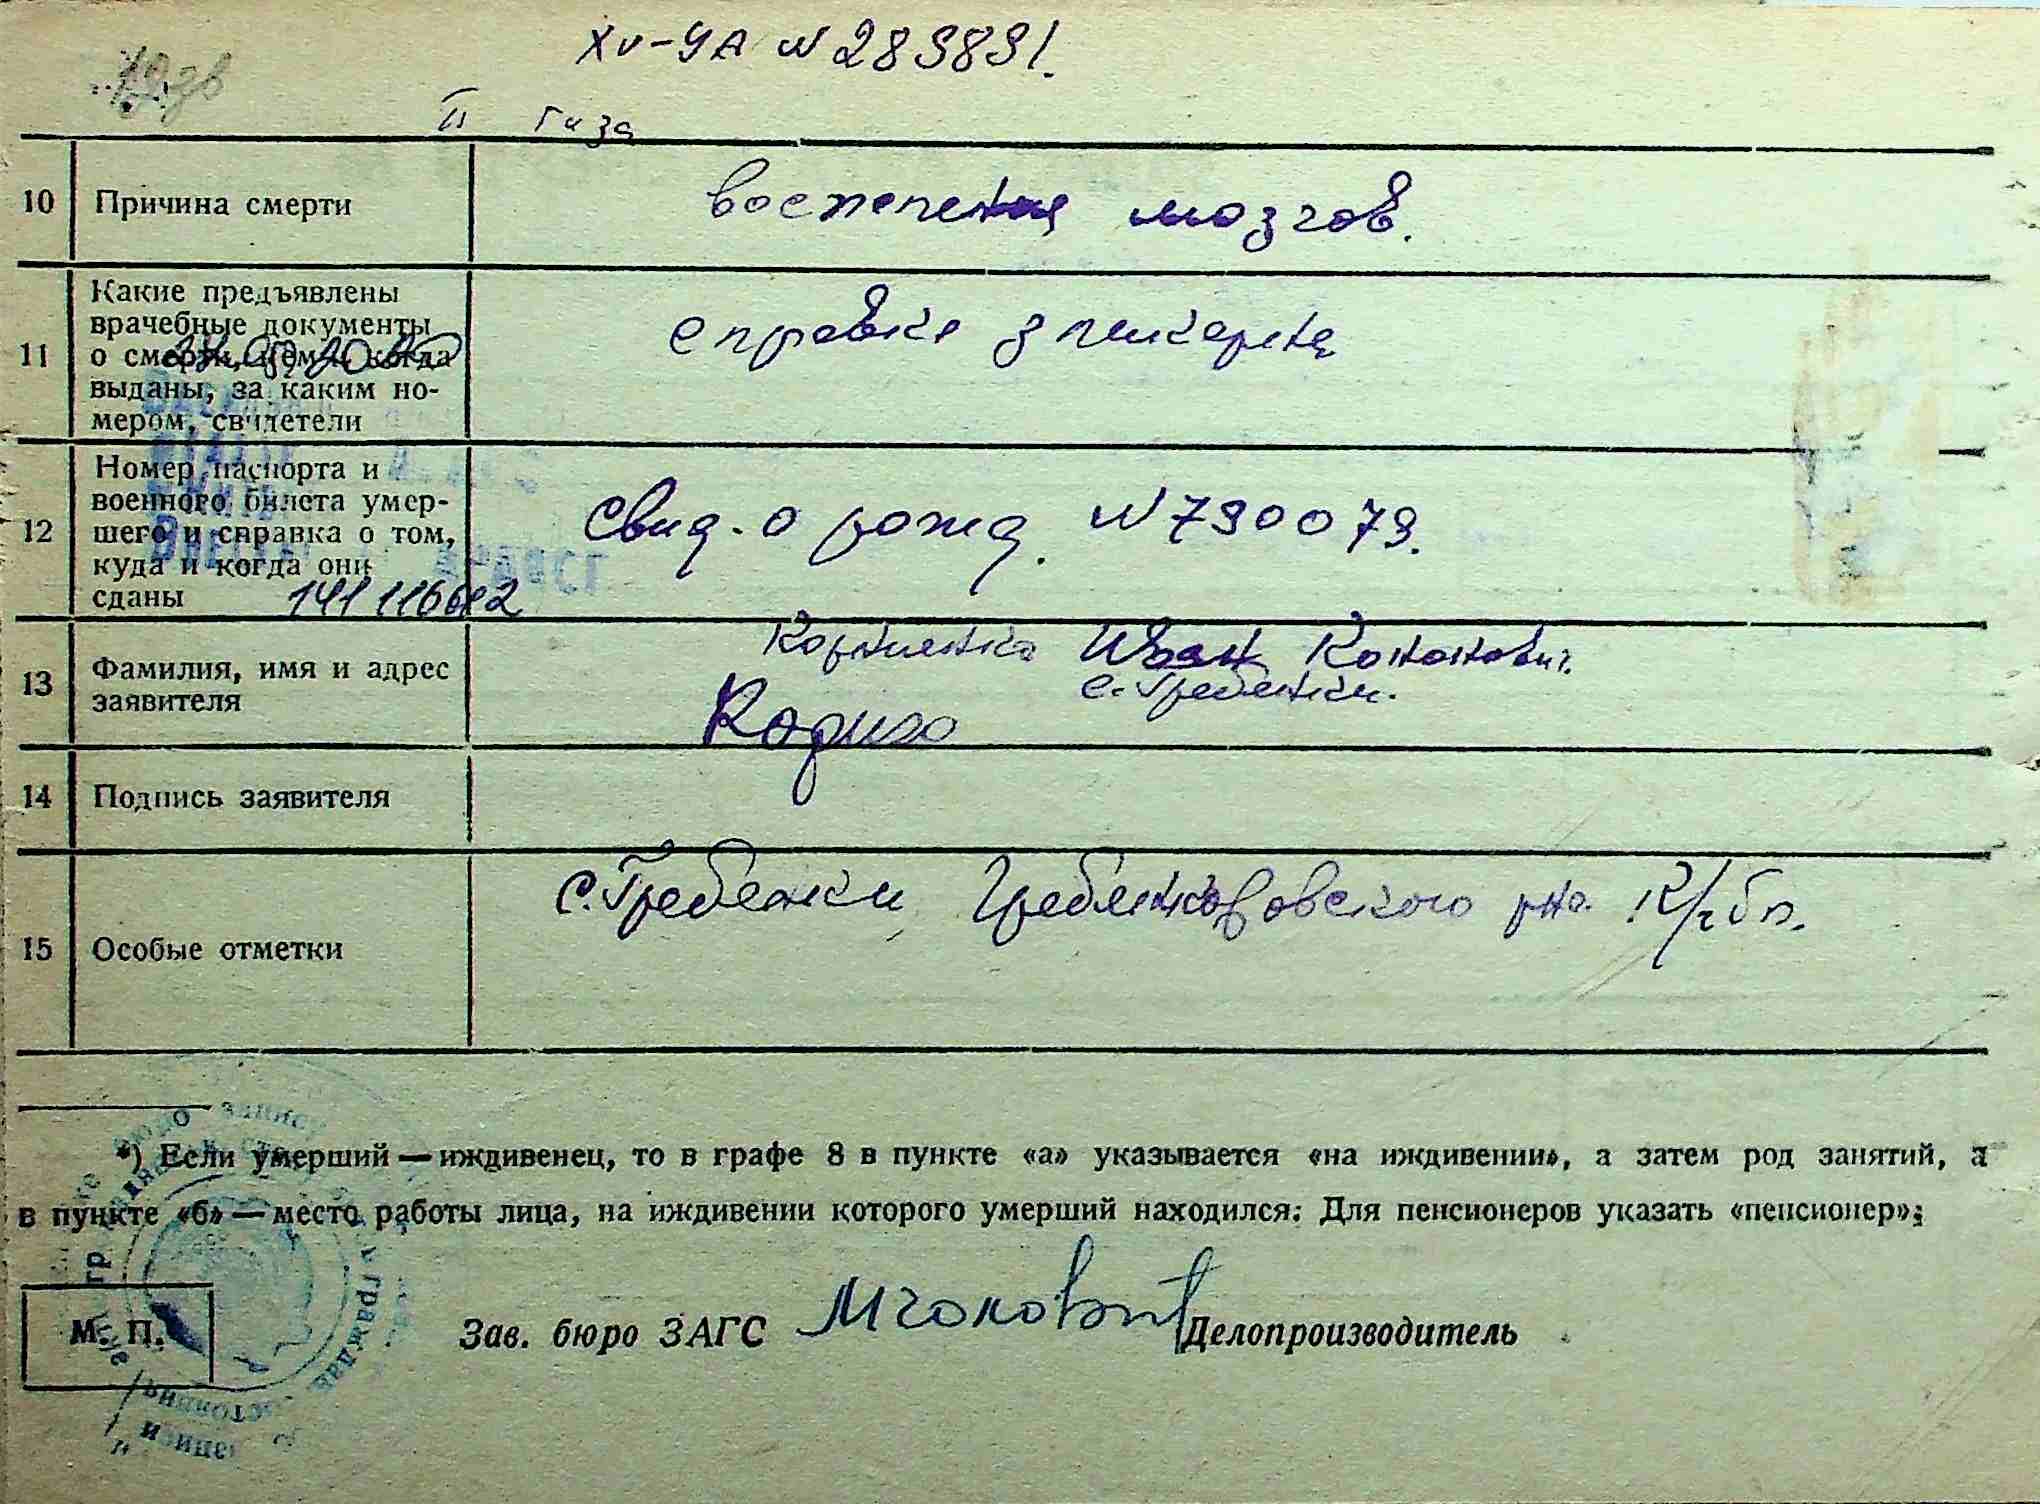 XV-УА N 289891.
II
10 Причина смерти
воспаления мозгов.
11 Какие предъявлены
врачебные документы
о смерти, кем и когда
выданы, за каким но-
мером, свидетели
справка з лікарні
12 Номер паспорта и
военного билета умер-
шего и справка о том,
куда и когда они
сданы
свид. о рожд. N 790079.
13 Фамилия, имя и адрес
заявителя
Корниенко Иван Кононович.
с. Гребенки.
14 Подпись заявителя
15 Особые отметки
с. Гребенки Гребенковского р-на К/обл.
*) Если умерший — иждивенец, то в графе 8 в пункте «а» указывается «на иждивении», а затем род занятий, а
в пункте «б» — место работы лица, на иждивении которого умерший находился; Для пенсионеров указать «пенсионер»;
М. П.
Зав. бюро ЗАГС Делопроизводитель